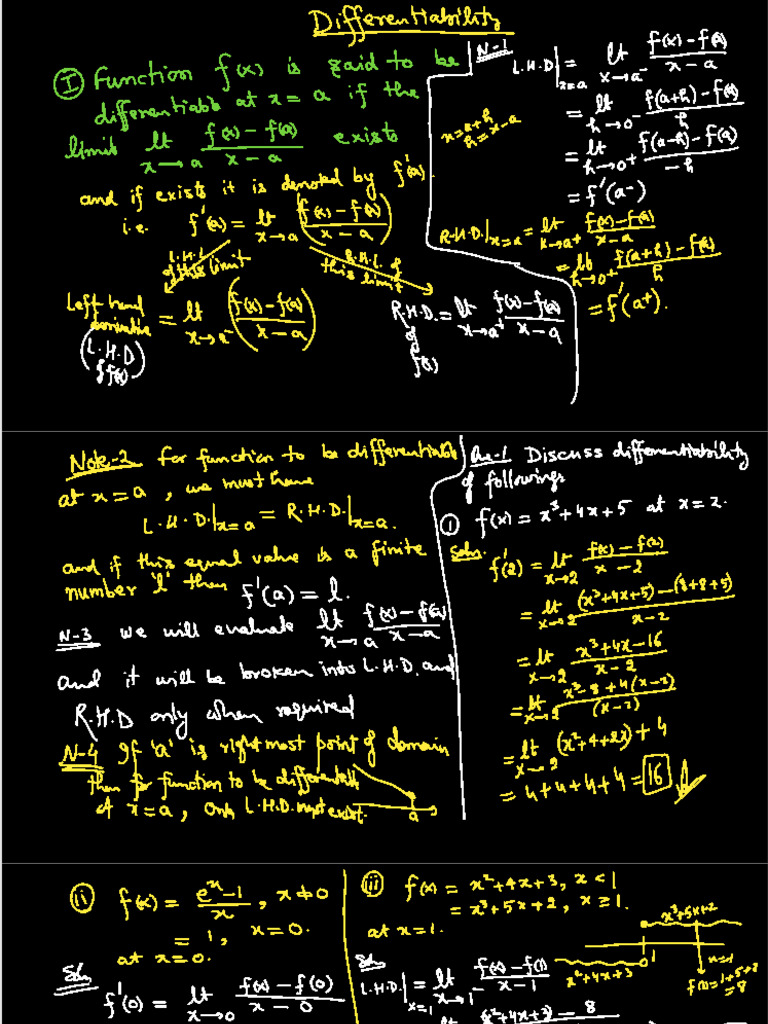 Differentiability
(I) Function f(x) is said to be
differentiable at x = a if the
limit lt x→a (f(x) – f(a))/(x – a) exists
and if exists it is denoted by f'(a).
i.e. f'(a) = lt x→a ((f(x) – f(a))/(x – a))
L.H.L of this limit
R.H.L. of this limit
Left hand derivative = lt x→a⁻ ((f(x) – f(a))/(x – a))
(L.H.D of f(x))
R.H.D. of f(x) = lt x→a⁺ (f(x) – f(a))/(x – a)
N-1
L.H.D|x=a = lt x→a⁻ (f(x) – f(a))/(x – a)
x = a + h
h = x – a
= lt h→0⁻ (f(a+h) – f(a))/h
= lt h→0⁺ (f(a–h) – f(a))/(–h)
= f'(a⁻)
R.H.D.|x=a = lt x→a⁺ (f(x) – f(a))/(x – a)
= lt h→0⁺ (f(a+h) – f(a))/h
= f'(a⁺).
Note-2 For function to be differentiable
at x = a, we must have
L.H.D.|x=a = R.H.D.|x=a.
and if this equal value is a finite
number 'l' then f'(a) = l.
N-3 we will evaluate lt x→a (f(x) – f(a))/(x – a)
and it will be broken into L.H.D. and
R.H.D only when required
N-4 If 'a' is right most point of domain
then for function to be differentiable
at x = a, only L.H.D. must exist.
a
Qu-1 Discuss differentiability
of followings
(i) f(x) = x³ + 4x + 5 at x = 2.
Soln. f'(2) = lt x→2 (f(x) – f(2))/(x – 2)
= lt x→2 ((x³+4x+5) – (8+8+5))/(x – 2)
= lt x→2 (x³ + 4x – 16)/(x – 2)
= lt x→2 (x³ – 8 + 4(x – 2))/(x – 2)
= lt x→2 (x² + 4 + 2x) + 4
= 4 + 4 + 4 + 4 = 16
(ii) f(x) = (eˣ – 1)/x, x ≠ 0
= 1, x = 0.
at x = 0.
Soln
f'(0) = lt x→0 (f(x) – f(0))/(x – 0)
(iii) f(x) = x² + 4x + 3, x < 1
= x³ + 5x + 2, x ≥ 1.
at x = 1.
x³+5x+2
1
x²+4x+3
x=1
f(1) = 1+5+2
= 8
Soln
L.H.D.|x=1 = lt x→1⁻ (f(x) – f(1))/(x – 1)
(x² + 4x + 3) – 8